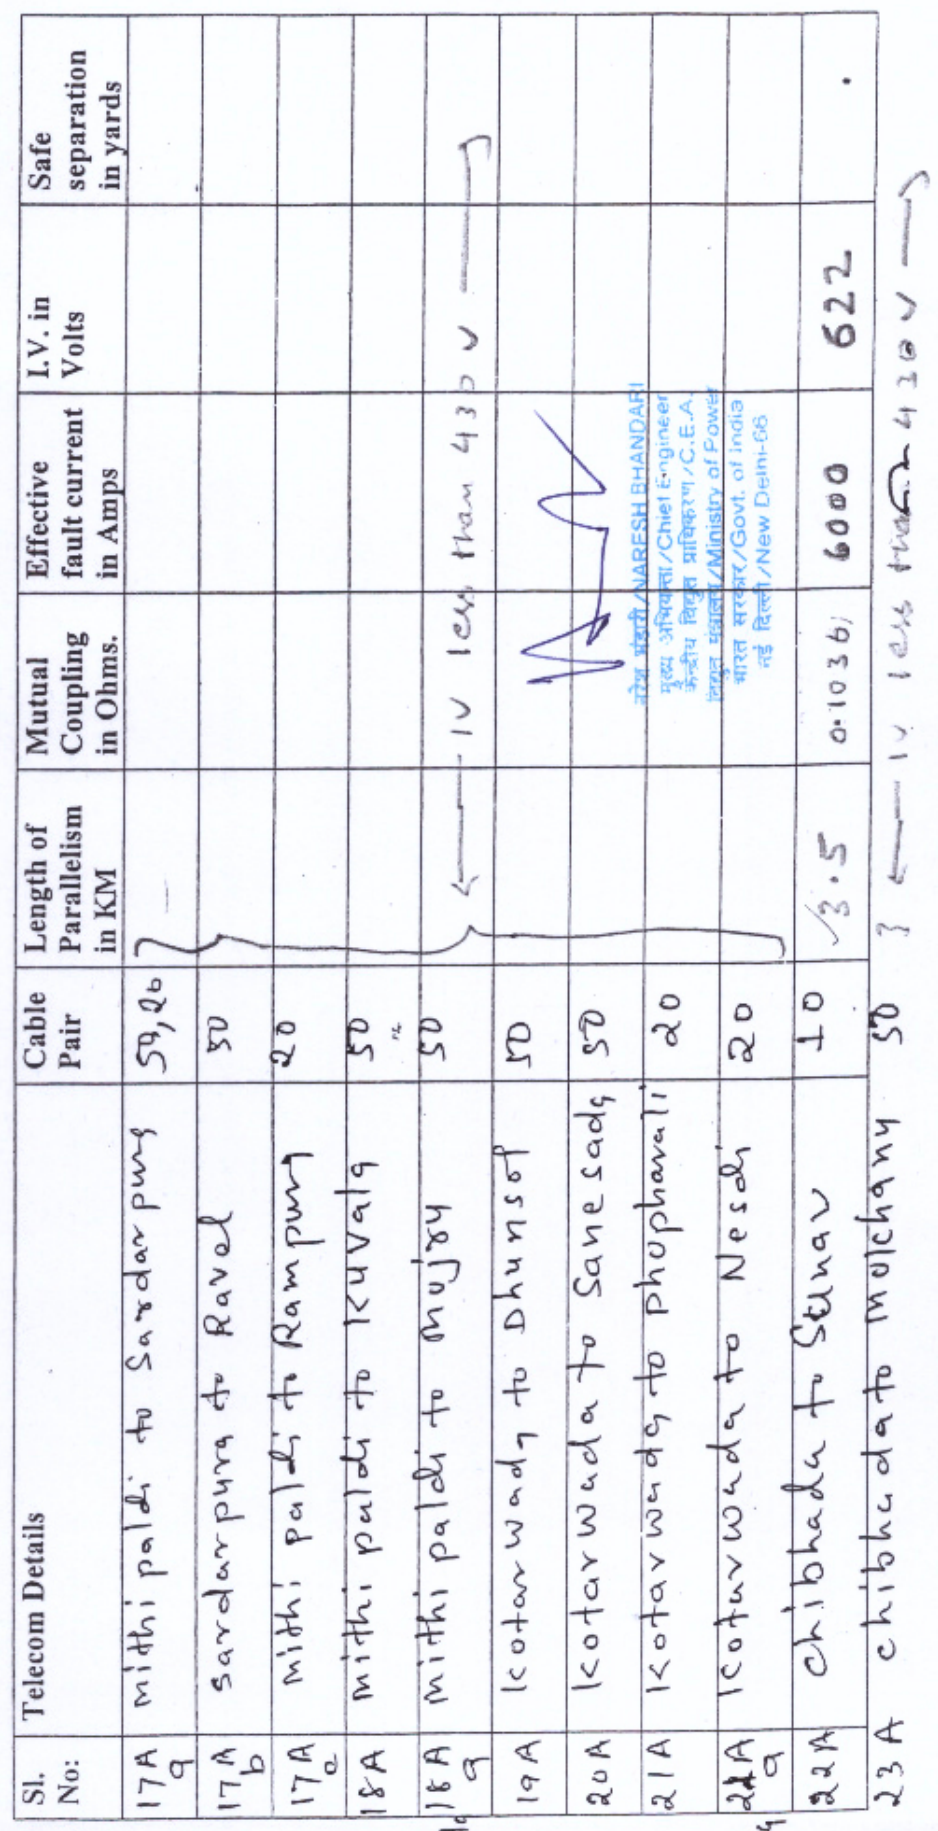 Sl. No: Telecom Details Cable Pair Length of Parallelism in KM Mutual Coupling in Ohms. Effective fault current in Amps I.V. in Volts Safe separation in yards
17A a mithi paldi to Sardarpura 50,20
17A b sardarpura to Ravel 50
17A c mithi paldi to Rampura 20
18A mithi paldi to Kuvala 50
18A a mithi paldi to Mujru 50 ← IV less than 430 V →
19A Kotarwada to Dhunsol 50
20A Kotarwada to Sanesada 50
21A Kotarwada to phupharali 20
21A a Kotarwada to Nesdi 20
22A Chibhada to 10 3.5 0.1036 6000 622 .
23A chibhada to mulchany 50 } ← IV less than 430 V →
नरेश भंडारी/NARESH BHANDARI
मुख्य अभियन्ता/Chief Engineer
केन्द्रीय विद्युत प्राधिकरण/C.E.A.
विद्युत मंत्रालय/Ministry of Power
भारत सरकार/Govt. of India
नई दिल्ली/New Delhi-66